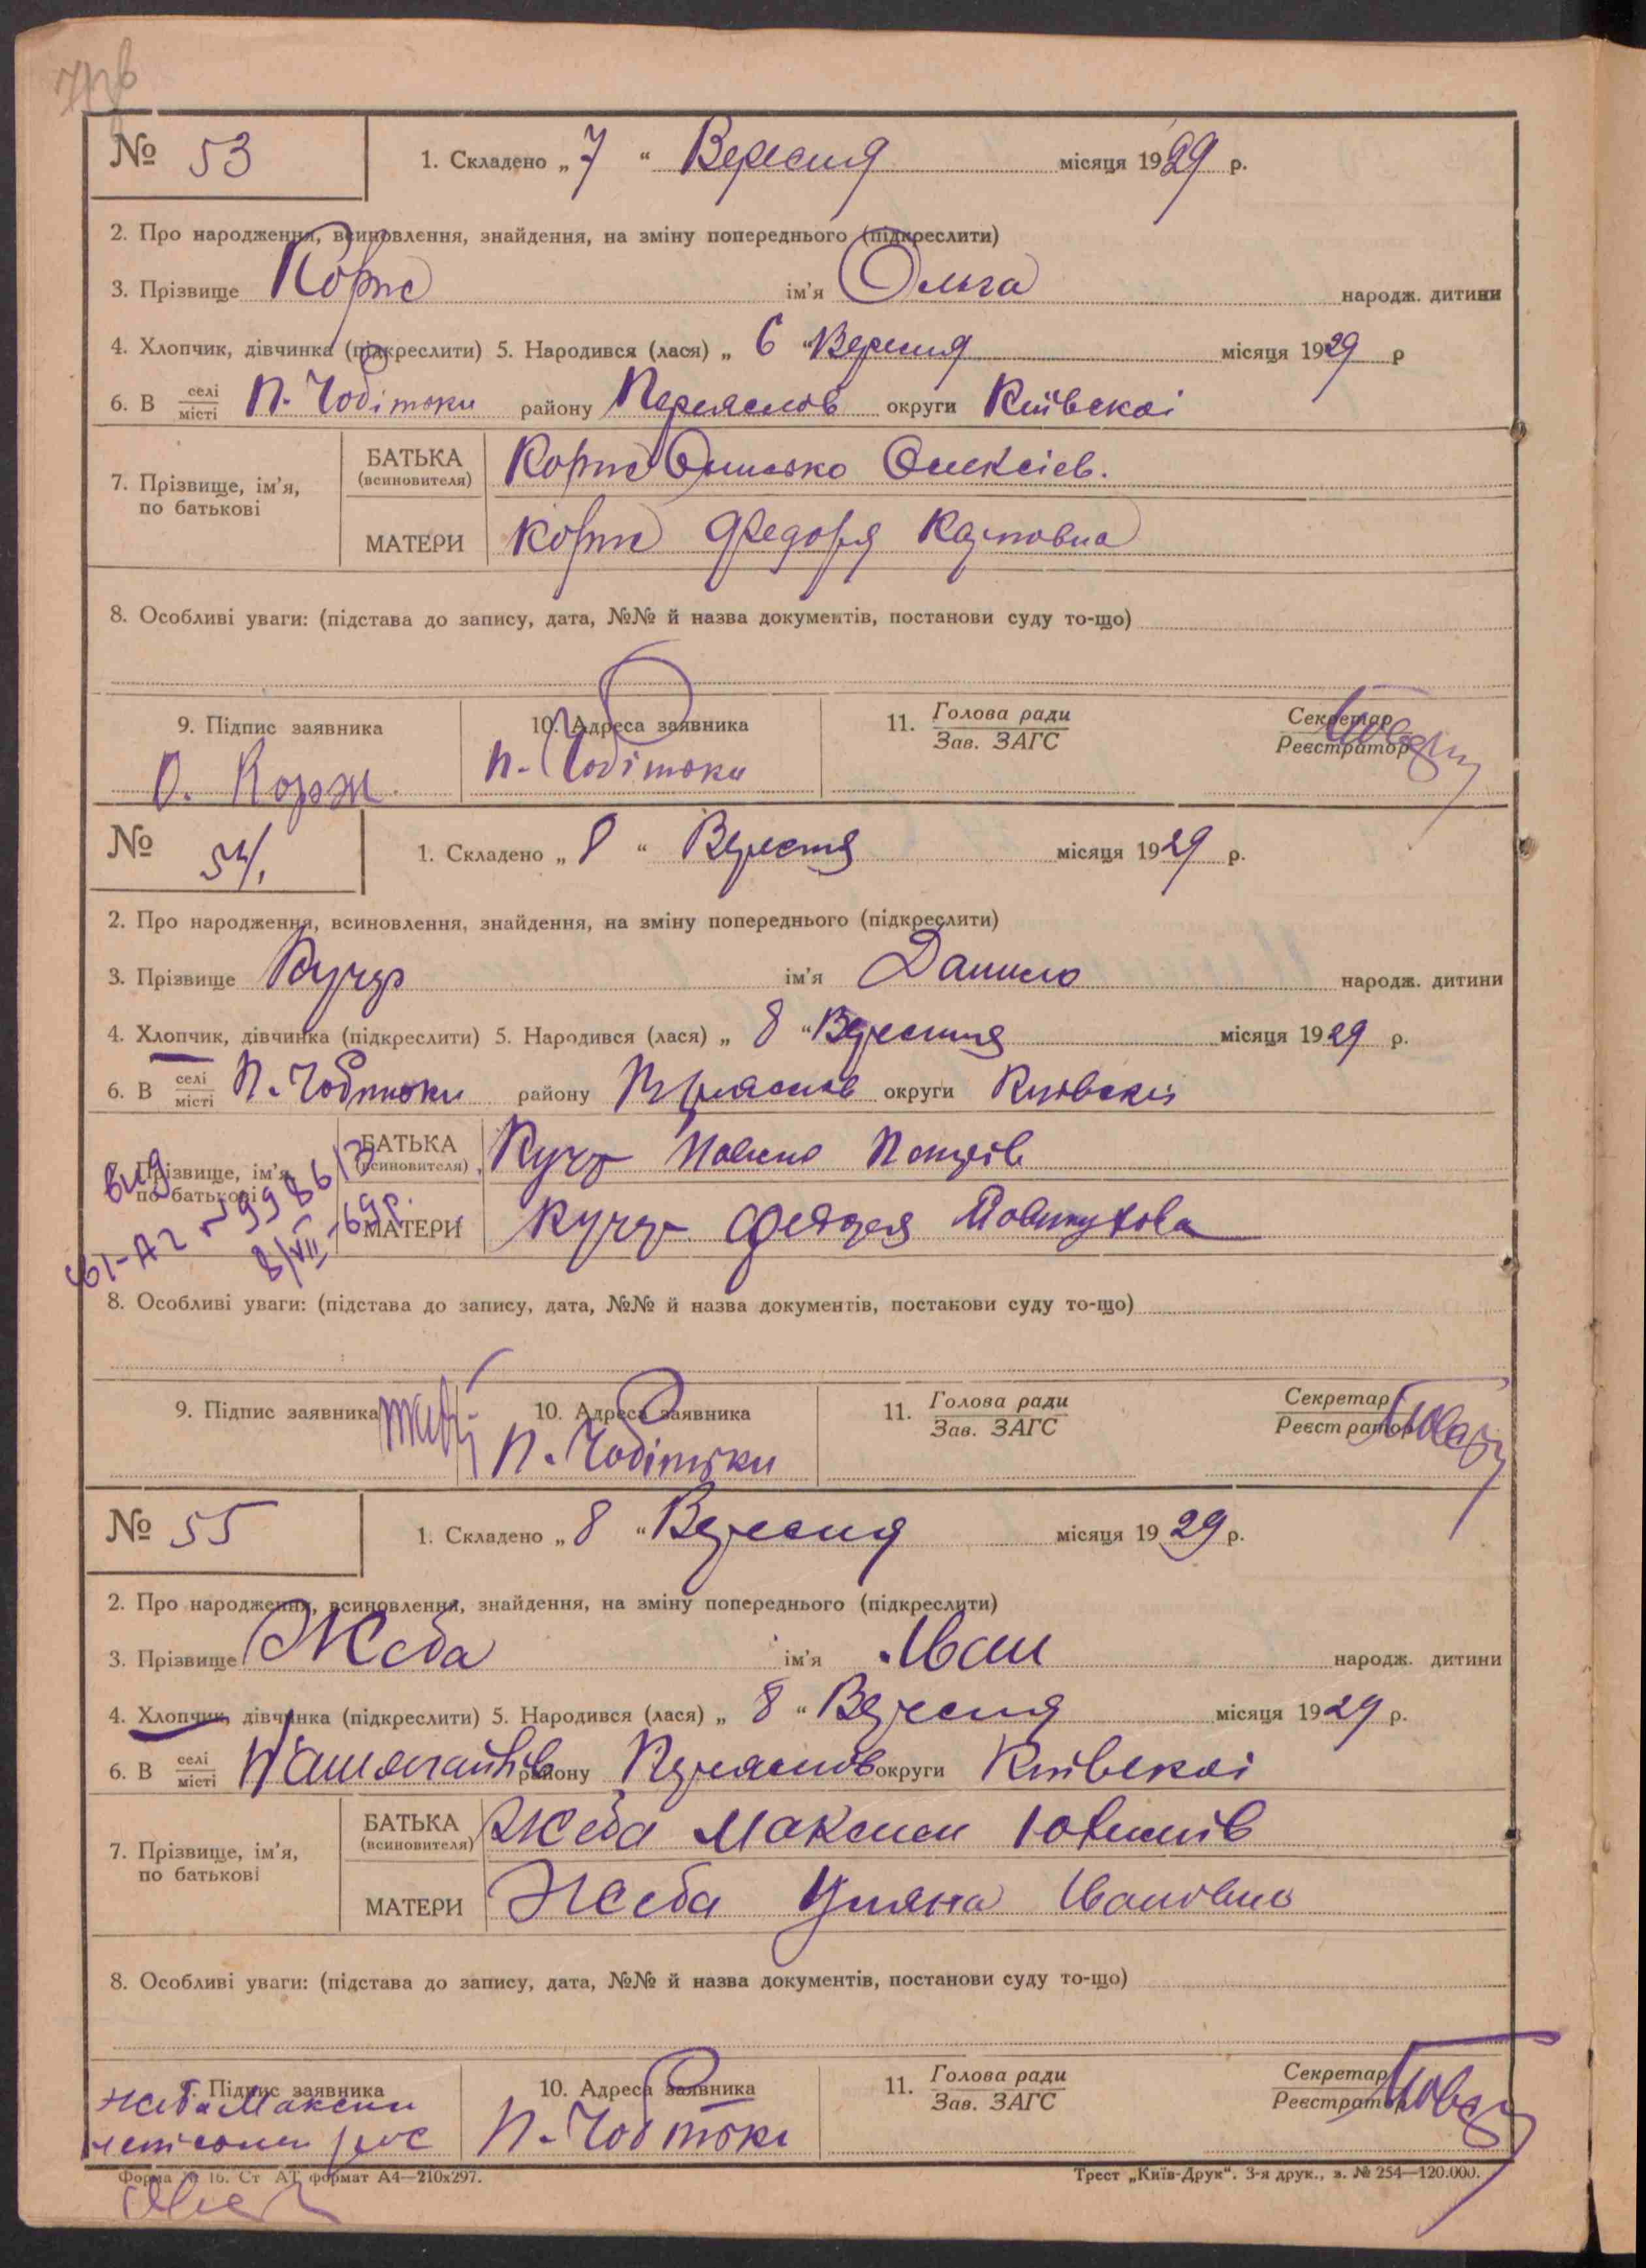 № 53
1. Складено „7“ Вересня місяця 1929 р.
2. Про народження, всиновлення, знайдення, на зміну попереднього (підкреслити)
3. Прізвище Корж ім'я Ольга народж. дитини
4. Хлопчик, дівчинка (підкреслити) 5. Народився (лася) „ 6 “ Вересня місяця 1929 р
6. В селі/місті П. Чобітьки району Переяслов округи Київскоі
7. Прізвище, ім'я, по батькові
БАТЬКА (всиновителя) Корж Олексієв.
МАТЕРИ Корж Федоря Карповна
8. Особливі уваги: (підстава до запису, дата, №№ й назва документів, постанови суду то-що)
9. Підпис заявника 10. Адреса заявника 11. Голова ради / Зав. ЗАГС Секретар / Реєстратор
О. Корж П. Чобітьки
№ 54.
1. Складено „8“ Вересня місяця 1929 р.
2. Про народження, всиновлення, знайдення, на зміну попереднього (підкреслити)
3. Прізвище Кучер ім'я Данило народж. дитини
4. Хлопчик, дівчинка (підкреслити) 5. Народився (лася) „ 8 “ Вересня місяця 1929 р.
6. В селі/місті П. Чобітьки району Переяслов округи Київскоі
7. Прізвище, ім'я, по батькові
БАТЬКА (всиновителя) Кучер Павло
МАТЕРИ Кучер Федора
8/VII-69р.
8. Особливі уваги: (підстава до запису, дата, №№ й назва документів, постанови суду то-що)
9. Підпис заявника 10. Адреса заявника 11. Голова ради / Зав. ЗАГС Секретар / Реєстратор
П. Чобітьки
№ 55
1. Складено „8“ Вересня місяця 1929 р.
2. Про народження, всиновлення, знайдення, на зміну попереднього (підкреслити)
3. Прізвище Жеба ім'я Іван народж. дитини
4. Хлопчик, дівчинка (підкреслити) 5. Народився (лася) „ 8 “ Вересня місяця 1929 р.
6. В селі/місті району Переяслов округи Київскоі
7. Прізвище, ім'я, по батькові
БАТЬКА (всиновителя) Жеба Максим Юхимів
МАТЕРИ Жеба Уляна Івановна
8. Особливі уваги: (підстава до запису, дата, №№ й назва документів, постанови суду то-що)
9. Підпис заявника 10. Адреса заявника 11. Голова ради / Зав. ЗАГС Секретар / Реєстратор
Жеба Максим П. Чобітьки
Форма № 16. Ст АТ формат А4—210x297. Трест „Київ-Друк“. 3-я друк., з. № 254—120.000.